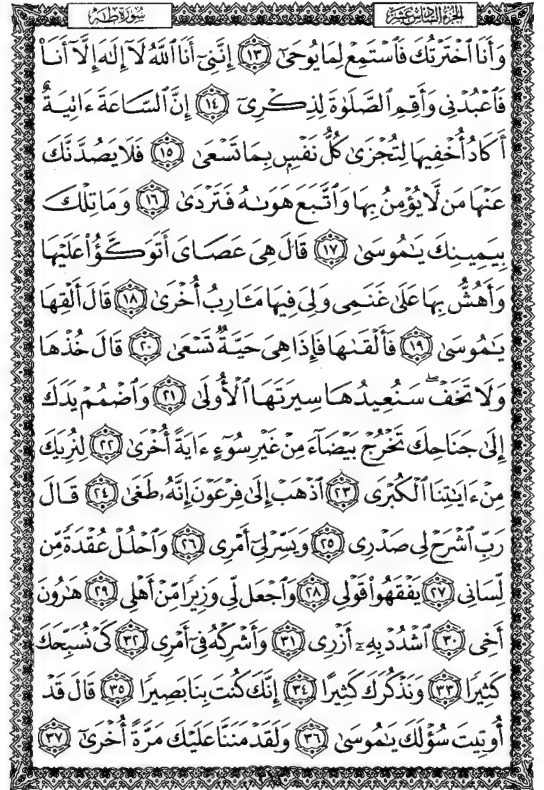 الجزء السادس عشر
سورة طه
وَأَنَا ٱخۡتَرۡتُكَ فَٱسۡتَمِعۡ لِمَا يُوحَىٰٓ ١٣ إِنَّنِيٓ أَنَا ٱللَّهُ لَآ إِلَٰهَ إِلَّآ أَنَا۠
فَٱعۡبُدۡنِي وَأَقِمِ ٱلصَّلَوٰةَ لِذِكۡرِيٓ ١٤ إِنَّ ٱلسَّاعَةَ ءَاتِيَةٌ
أَكَادُ أُخۡفِيهَا لِتُجۡزَىٰ كُلُّ نَفۡسِۭ بِمَا تَسۡعَىٰ ١٥ فَلَا يَصُدَّنَّكَ
عَنۡهَا مَن لَّا يُؤۡمِنُ بِهَا وَٱتَّبَعَ هَوَىٰهُ فَتَرۡدَىٰ ١٦ وَمَا تِلۡكَ
بِيَمِينِكَ يَٰمُوسَىٰ ١٧ قَالَ هِيَ عَصَايَ أَتَوَكَّؤُاْ عَلَيۡهَا
وَأَهُشُّ بِهَا عَلَىٰ غَنَمِي وَلِيَ فِيهَا مَـَٔارِبُ أُخۡرَىٰ ١٨ قَالَ أَلۡقِهَا
يَٰمُوسَىٰ ١٩ فَأَلۡقَىٰهَا فَإِذَا هِيَ حَيَّةٞ تَسۡعَىٰ ٢٠ قَالَ خُذۡهَا
وَلَا تَخَفۡۖ سَنُعِيدُهَا سِيرَتَهَا ٱلۡأُولَىٰ ٢١ وَٱضۡمُمۡ يَدَكَ
إِلَىٰ جَنَاحِكَ تَخۡرُجۡ بَيۡضَآءَ مِنۡ غَيۡرِ سُوٓءٍ ءَايَةً أُخۡرَىٰ ٢٢ لِنُرِيَكَ
مِنۡ ءَايَٰتِنَا ٱلۡكُبۡرَى ٢٣ ٱذۡهَبۡ إِلَىٰ فِرۡعَوۡنَ إِنَّهُۥ طَغَىٰ ٢٤ قَالَ
رَبِّ ٱشۡرَحۡ لِي صَدۡرِي ٢٥ وَيَسِّرۡ لِيٓ أَمۡرِي ٢٦ وَٱحۡلُلۡ عُقۡدَةٗ مِّن
لِّسَانِي ٢٧ يَفۡقَهُواْ قَوۡلِي ٢٨ وَٱجۡعَل لِّي وَزِيرٗا مِّنۡ أَهۡلِي ٢٩ هَٰرُونَ
أَخِي ٣٠ ٱشۡدُدۡ بِهِۦٓ أَزۡرِي ٣١ وَأَشۡرِكۡهُ فِيٓ أَمۡرِي ٣٢ كَيۡ نُسَبِّحَكَ
كَثِيرٗا ٣٣ وَنَذۡكُرَكَ كَثِيرًا ٣٤ إِنَّكَ كُنتَ بِنَا بَصِيرٗا ٣٥ قَالَ قَدۡ
أُوتِيتَ سُؤۡلَكَ يَٰمُوسَىٰ ٣٦ وَلَقَدۡ مَنَنَّا عَلَيۡكَ مَرَّةً أُخۡرَىٰٓ ٣٧